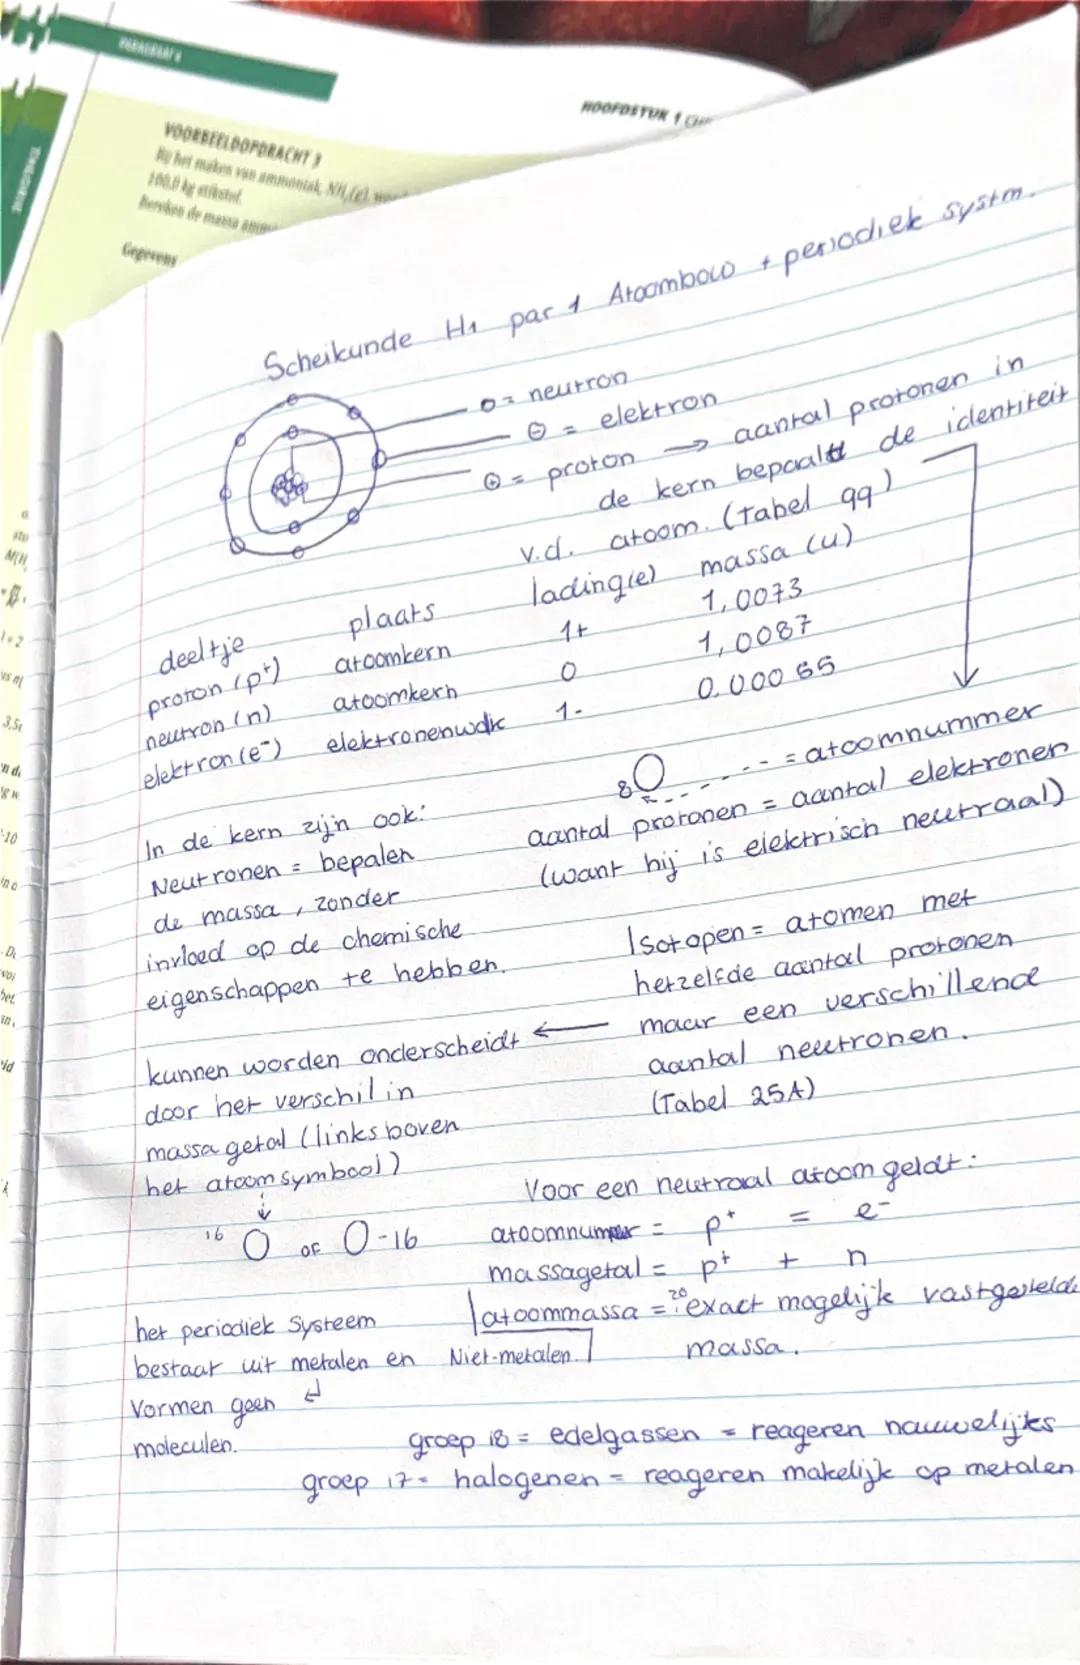 PARAGRAAF 4
HOOFDSTUK 1
THEORIE
VOORBEELDOPDRACHT 3
Bij het maken van ammoniak, NH₃(g),
100,0 kg stikstof.
Bereken de massa
Gegevens
Scheikunde H1 par 1 Atoombouw + periodiek systm.
o = neutron
⊖ = elektron
⊕ = proton → aantal protonen in
de kern bepaalt de identiteit
v.d. atoom. (Tabel 99)
deeltje plaats lading(e) massa (u)
proton (p⁺) atoomkern 1+ 1,0073
neutron (n) atoomkern 0 1,0087
elektron (e⁻) elektronenwolk 1- 0.00055
₈O = atoomnummer
aantal protonen = aantal elektronen
(want hij is elektrisch neutraal)
In de kern zijn ook:
Neutronen = bepalen
de massa, zonder
invloed op de chemische
eigenschappen te hebben.
Isotopen = atomen met
hetzelfde aantal protonen
maar een verschillend
aantal neutronen.
(Tabel 25A)
kunnen worden onderscheidt ←
door het verschil in
massa getal (links boven
het atoomsymbool)
¹⁶O of O-16
Voor een neutraal atoom geldt:
atoomnummer = p⁺ = e⁻
massagetal = p⁺ + n
atoommassa = zo exact mogelijk vastgestelde
massa.
het periodiek systeem
bestaat uit metalen en Niet-metalen.
Vormen geen
moleculen.
groep 18 = edelgassen = reageren nauwelijks
groep 17 = halogenen = reageren makelijk op metalen